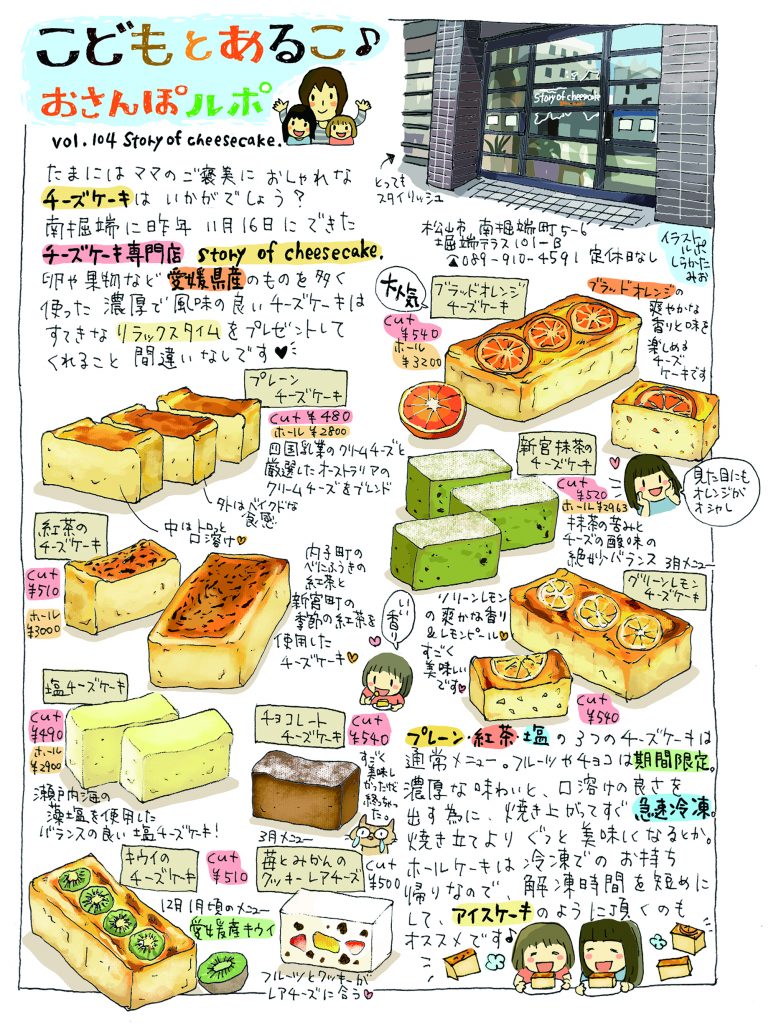 こどもとあるこ♪
おさんぽルポ
vol.104 Story of cheesecake.
たまにはママのご褒美におしゃれな
チーズケーキはいかがでしょう？
南堀端に昨年11月16日にできた
チーズケーキ専門店 story of cheesecake.
卵や果物など愛媛県産のものを多く
使った濃厚で風味の良いチーズケーキは
すてきなリラックスタイムをプレゼントして
くれること間違いなしです♥
story of cheesecake
とっても
スタイリッシュ
松山市南堀端町5-6
堀端テラス101-B
☎089-910-4591 定休日なし
イラスト
ルポ
しらかた
みお
大人気
ブラッドオレンジ
チーズケーキ
cut
¥540
ホール
¥3200
ブラッドオレンジの
爽やかな
香りと味を
楽しめる
チーズ
ケーキです
プレーン
チーズケーキ
cut ¥480
ホール ¥2800
四国乳業のクリームチーズと
厳選したオーストラリアの
クリームチーズをブレンド
外はベイクドな
食感
中はトロッと
口溶け♥
新宮抹茶の
チーズケーキ
cut
¥520
ホール ¥2963
抹茶の苦みと
チーズの酸味の
絶妙バランス
3月メニュー
見た目にも
オレンジが
オシャレ
紅茶の
チーズケーキ
cut
¥510
ホール
¥3000
内子町の
べにふうきの
紅茶と
新宮町の
季節の紅茶を
使用した
チーズケーキ♥
いい
香り
グリーンレモン
チーズケーキ
グリーンレモン
の爽かな香り
&レモンピール♥
すごく
美味しい
です♥
cut
¥540
塩チーズケーキ
cut
¥490
ホール
¥2900
瀬戸内海の
藻塩を使用した
バランスの良い塩チーズケーキ!
チョコレート
チーズケーキ
cut
¥540
すごく
美味し
かったけど
終っちゃっ
た。
3月メニュー
プレーン・紅茶・塩の3つのチーズケーキは
通常メニュー。フルーツやチョコは期間限定。
濃厚な味わいと、口溶けの良さを
出す為に、焼き上がってすぐ急速冷凍。
焼き立てよりぐっと美味しくなるとか。
ホールケーキは冷凍でのお持ち
帰りなので解凍時間を短めに
して、アイスケーキのように頂くのも
オススメです♪
キウイの
チーズケーキ
cut
¥510
12月1月頃のメニュー
愛媛産キウイ
苺とみかんの
クッキーレアチーズ
cut
¥500
フルーツとクッキーが
レアチーズに合う♥